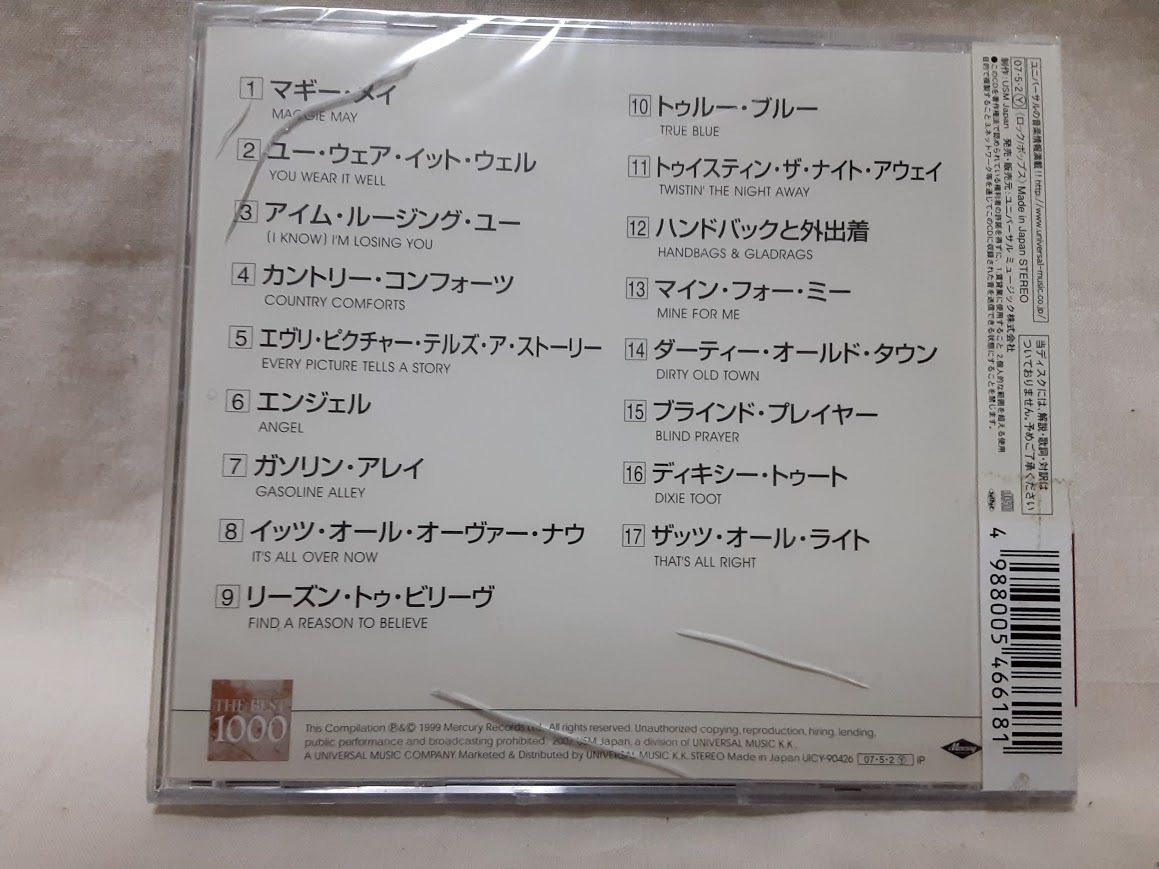 1 マギー・メイ
MAGGIE MAY
2 ユー・ウェア・イット・ウェル
YOU WEAR IT WELL
3 アイム・ルージング・ユー
(I KNOW) I'M LOSING YOU
4 カントリー・コンフォーツ
COUNTRY COMFORTS
5 エヴリ・ピクチャー・テルズ・ア・ストーリー
EVERY PICTURE TELLS A STORY
6 エンジェル
ANGEL
7 ガソリン・アレイ
GASOLINE ALLEY
8 イッツ・オール・オーヴァー・ナウ
IT'S ALL OVER NOW
9 リーズン・トゥ・ビリーヴ
FIND A REASON TO BELIEVE
10 トゥルー・ブルー
TRUE BLUE
11 トゥイスティン・ザ・ナイト・アウェイ
TWISTIN' THE NIGHT AWAY
12 ハンドバックと外出着
HANDBAGS & GLADRAGS
13 マイン・フォー・ミー
MINE FOR ME
14 ダーティー・オールド・タウン
DIRTY OLD TOWN
15 ブラインド・プレイヤー
BLIND PRAYER
16 ディキシー・トゥート
DIXIE TOOT
17 ザッツ・オール・ライト
THAT'S ALL RIGHT
THE BEST
1000
This Compilation Ⓟ&© 1999 Mercury Records Ltd. All rights reserved. Unauthorized copying, reproduction, hiring, lending,
public performance and broadcasting prohibited. 2007 USM Japan, a division of UNIVERSAL MUSIC K.K.
A UNIVERSAL MUSIC COMPANY Marketed & Distributed by UNIVERSAL MUSIC K.K. STEREO Made in Japan UICY-90426 07・5・2 Ⓨ IP
Mercury
ユニバーサルの音楽情報満載!! http://www.universal-music.co.jp/
07・5・2 Ⓨ (ロック/ポップス) Made in Japan STEREO
制作:USM Japan 発売・販売元:ユニバーサル ミュージック株式会社
●このCDを著作権法で認められている権利者の許諾を得ずに、1.賃貸業に使用すること 2.個人的な範囲を超える使用
目的で複製すること 3.ネットワーク等を通じてこのCDに収録された音を送信できる状態にすることを禁じます。
当ディスクには、解説・歌詞・対訳は
ついておりません。予めご了承ください
4 988005 466181